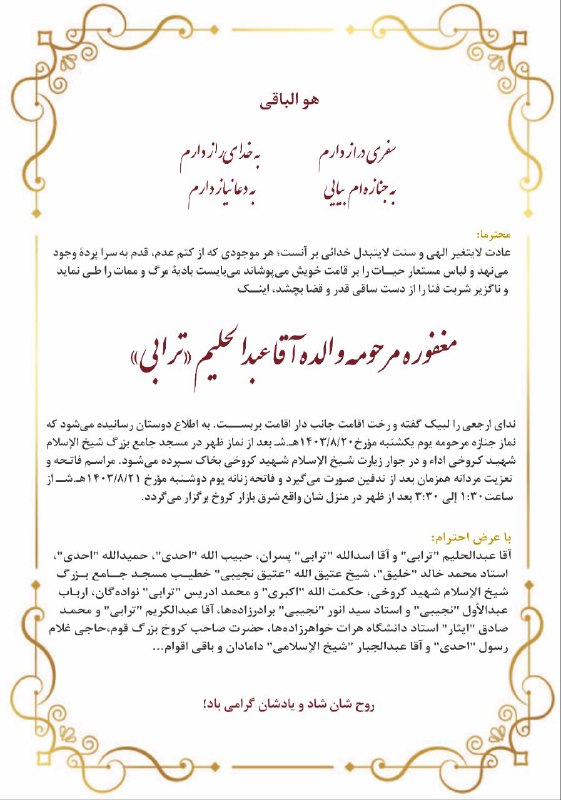 هو الباقی
سفری دراز دارم به خدای راز دارم
به جنازه‌ام بیایی به دعا نیاز دارم
محترما:
عادت لایتغیر الهی و سنت لایتبدل خدائی بر آنست؛ هر موجودی که از کتم عدم، قدم به سرا پردهٔ وجود
می‌نهد و لباس مستعار حیات را بر قامت خویش می‌پوشاند می‌بایست بادیهٔ مرگ و ممات را طی نماید
و ناگزیر شربت فنا را از دست ساقی قدر و قضا بچشد، اینک
مغفوره مرحومه والده آقا عبدالحلیم «ترابی»
ندای ارجعی را لبیک گفته و رخت اقامت جانب دار اقامت بربست. به اطلاع دوستان رسانیده می‌شود که
نماز جنازه مرحومه یوم یکشنبه مؤرخ ۱۴۰۳/۸/۲۰هـ.شـ بعد از نماز ظهر در مسجد جامع بزرگ شیخ الإسلام
شهید کروخی اداء و در جوار زیارت شیخ الإسلام شهید کروخی بخاک سپرده می‌شود. مراسم فاتحه و
تعزیت مردانه همزمان بعد از تدفین صورت می‌گیرد و فاتحه زنانه یوم دوشنبه مؤرخ ۱۴۰۳/۸/۲۱هـ.شـ از
ساعت ۱:۳۰ إلی ۳:۳۰ بعد از ظهر در منزل شان واقع شرق بازار کروخ برگزار می‌گردد.
با عرض احترام:
آقا عبدالحلیم "ترابی" و آقا اسدالله "ترابی" پسران، حبیب الله "احدی"، حمیدالله "احدی"،
استاد محمد خالد "خلیق"، شیخ عتیق الله "عتیق نجیبی" خطیب مسجد جامع بزرگ
شیخ الإسلام شهید کروخی، حکمت الله "اکبری" و محمد ادریس "ترابی" نواده‌گان، ارباب
عبدالأول "نجیبی" و استاد سید انور "نجیبی" برادرزاده‌ها، آقا عبدالکریم "ترابی" و محمد
صادق "ایثار" استاد دانشگاه هرات خواهرزاده‌ها، حضرت صاحب کروخ بزرگ قوم،حاجی غلام
رسول "احدی" و آقا عبدالجبار "شیخ الإسلامی" دامادان و باقی اقوام...
روح شان شاد و یادشان گرامی باد!